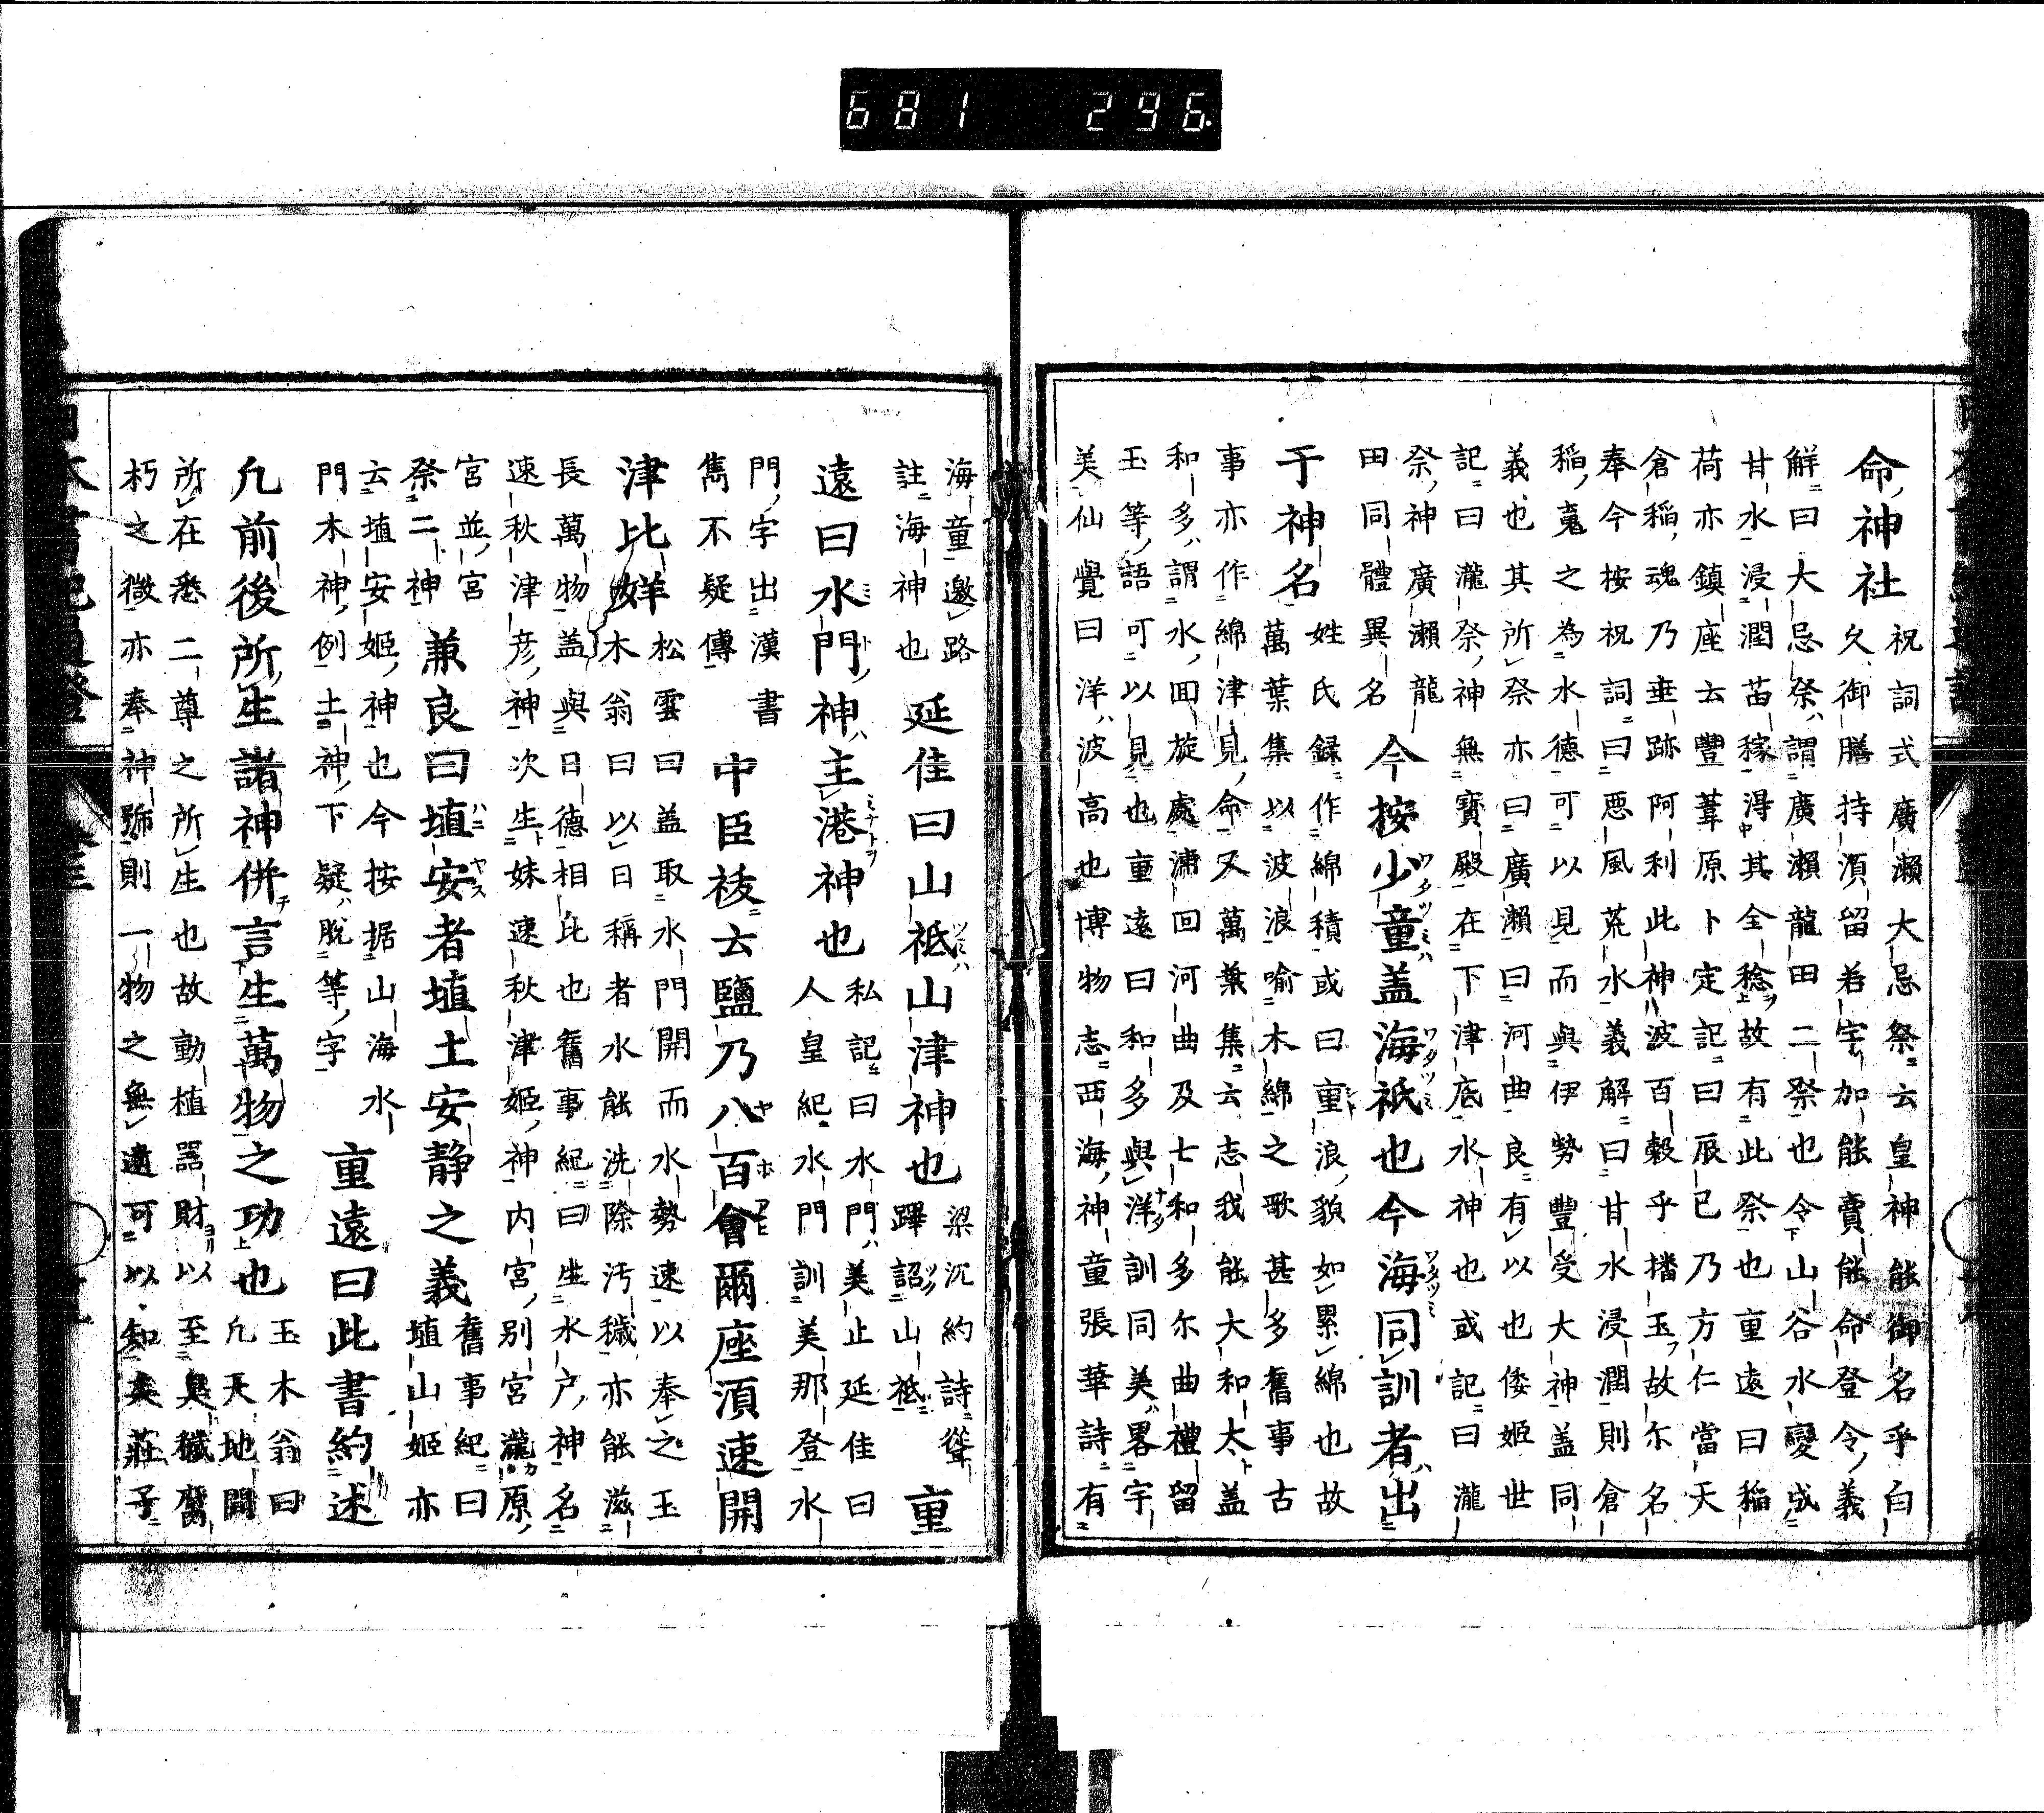 命神社
祝詞式廣瀬大忌祭云皇神能御名乎白
久御膳持湏留若宇加能賣能命登令義
解曰大忌祭謂廣瀬龍田二祭也令山谷水變成
甘水浸潤苗稼淂其全稔故有此祭也重遠曰稲
荷亦鎮座去豐葦原卜定記曰辰巳乃方仁當天
倉稲魂乃垂跡阿利此神波百穀乎播玉故尓名
奉今按祝詞曰悪風荒水義解曰甘水浸潤則倉
稲䰟之為水德可以見而與伊勢豐受大神盖同
義也其所祭亦曰廣瀬曰河曲良有以也倭姫世
記曰瀧祭神無寶殿在下津底水神也或記曰瀧
祭神廣瀬龍
田同體異名
今按少童盖海祇也今海同訓者出
于神名
姓氏録作綿積或曰重浪貌如累綿也故
萬葉集以波浪喻木綿之歌甚多舊事古
事亦作綿津見命又萬葉集云志我能大和太盖
和多謂水囬旋處浦回河曲及七和多尓曲禮留
玉等語可以見也重遠曰和多與洋訓同美畧宇
美仙覺曰洋波高也博物志西海神童張華詩有
海童邀路
註海神也
延佳曰山祇山津神也
梁沉約詩聳
蹕詔山祇
重
遠曰水門神主港神也
私記曰水門美止延佳曰
人皇紀水門訓美那登水
門字出漢書
雋不疑傳
中臣祓云鹽乃八百會爾座湏速開
津比咩
松雲曰盖取水門開而水勢速以奉之玉
木翁曰以日稱者水能洗除汚穢亦能滋
長萬物盖與日德相比也舊事紀曰生水户神名
速秋津彦神次生妹速秋津姫神内宮別宮瀧原
宮並宮
祭二神
兼良曰埴安者埴土安静之義
舊事紀曰
埴山姫亦
云埴安姫神也今按据山海水
門木神例土神下疑脱等字
重遠曰此書約述
凡前後所生諸神併言生萬物之功也
玉木翁曰
凡天地開
所在悉二尊之所生也故動植噐財以至臭穢腐
朽之微亦奉神號則一物之無遺可以知矣莊子